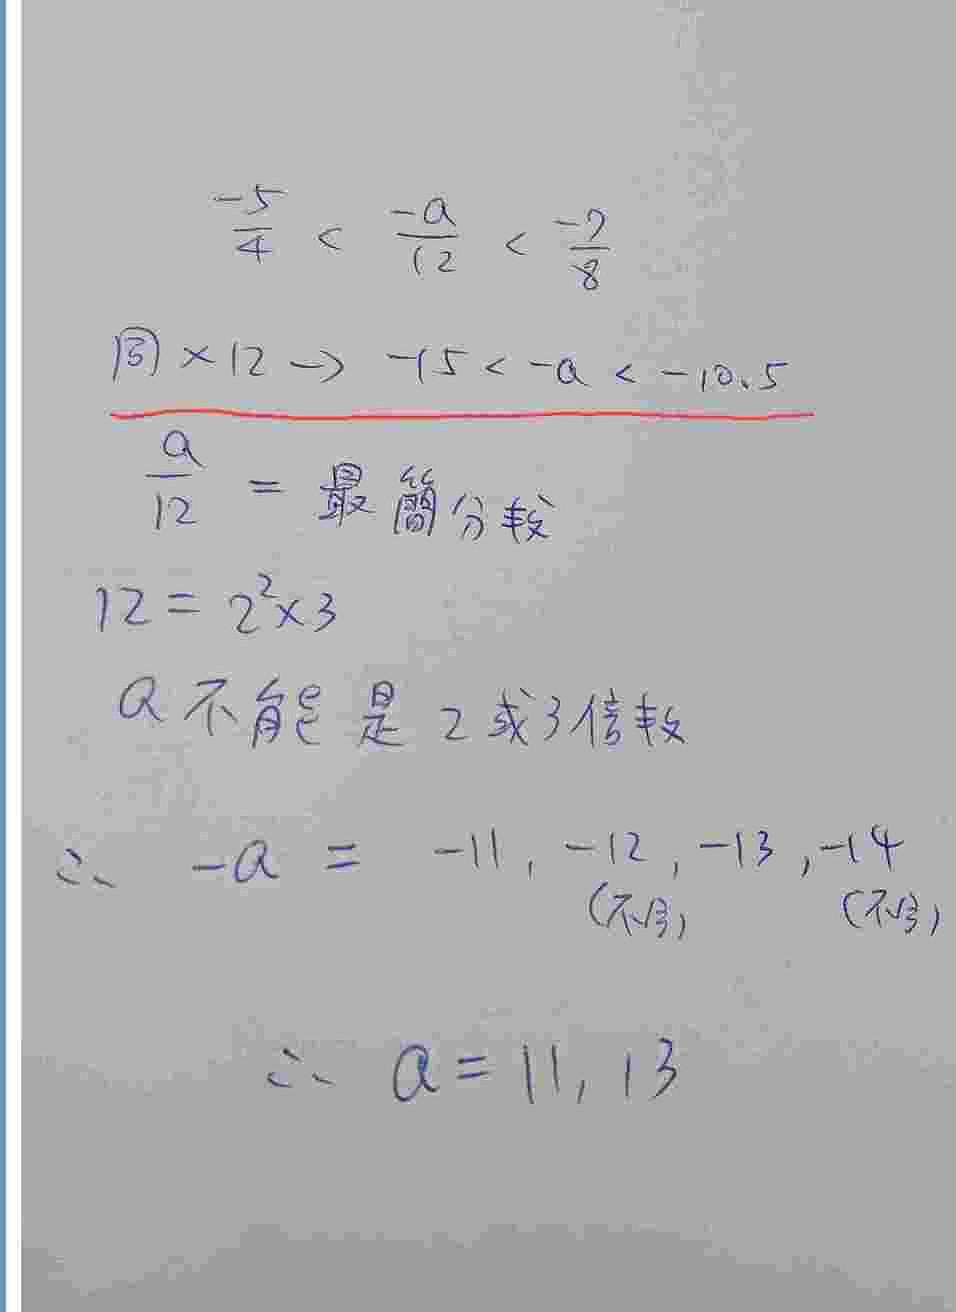 -5/4 < -a/12 < -7/8
同×12 → -15 < -a < -10.5
a/12 = 最簡分數
12 = 2²×3
a不能是2或3倍數
∴ -a = -11, -12, -13, -14
(不合) (不合)
∴ a = 11, 13